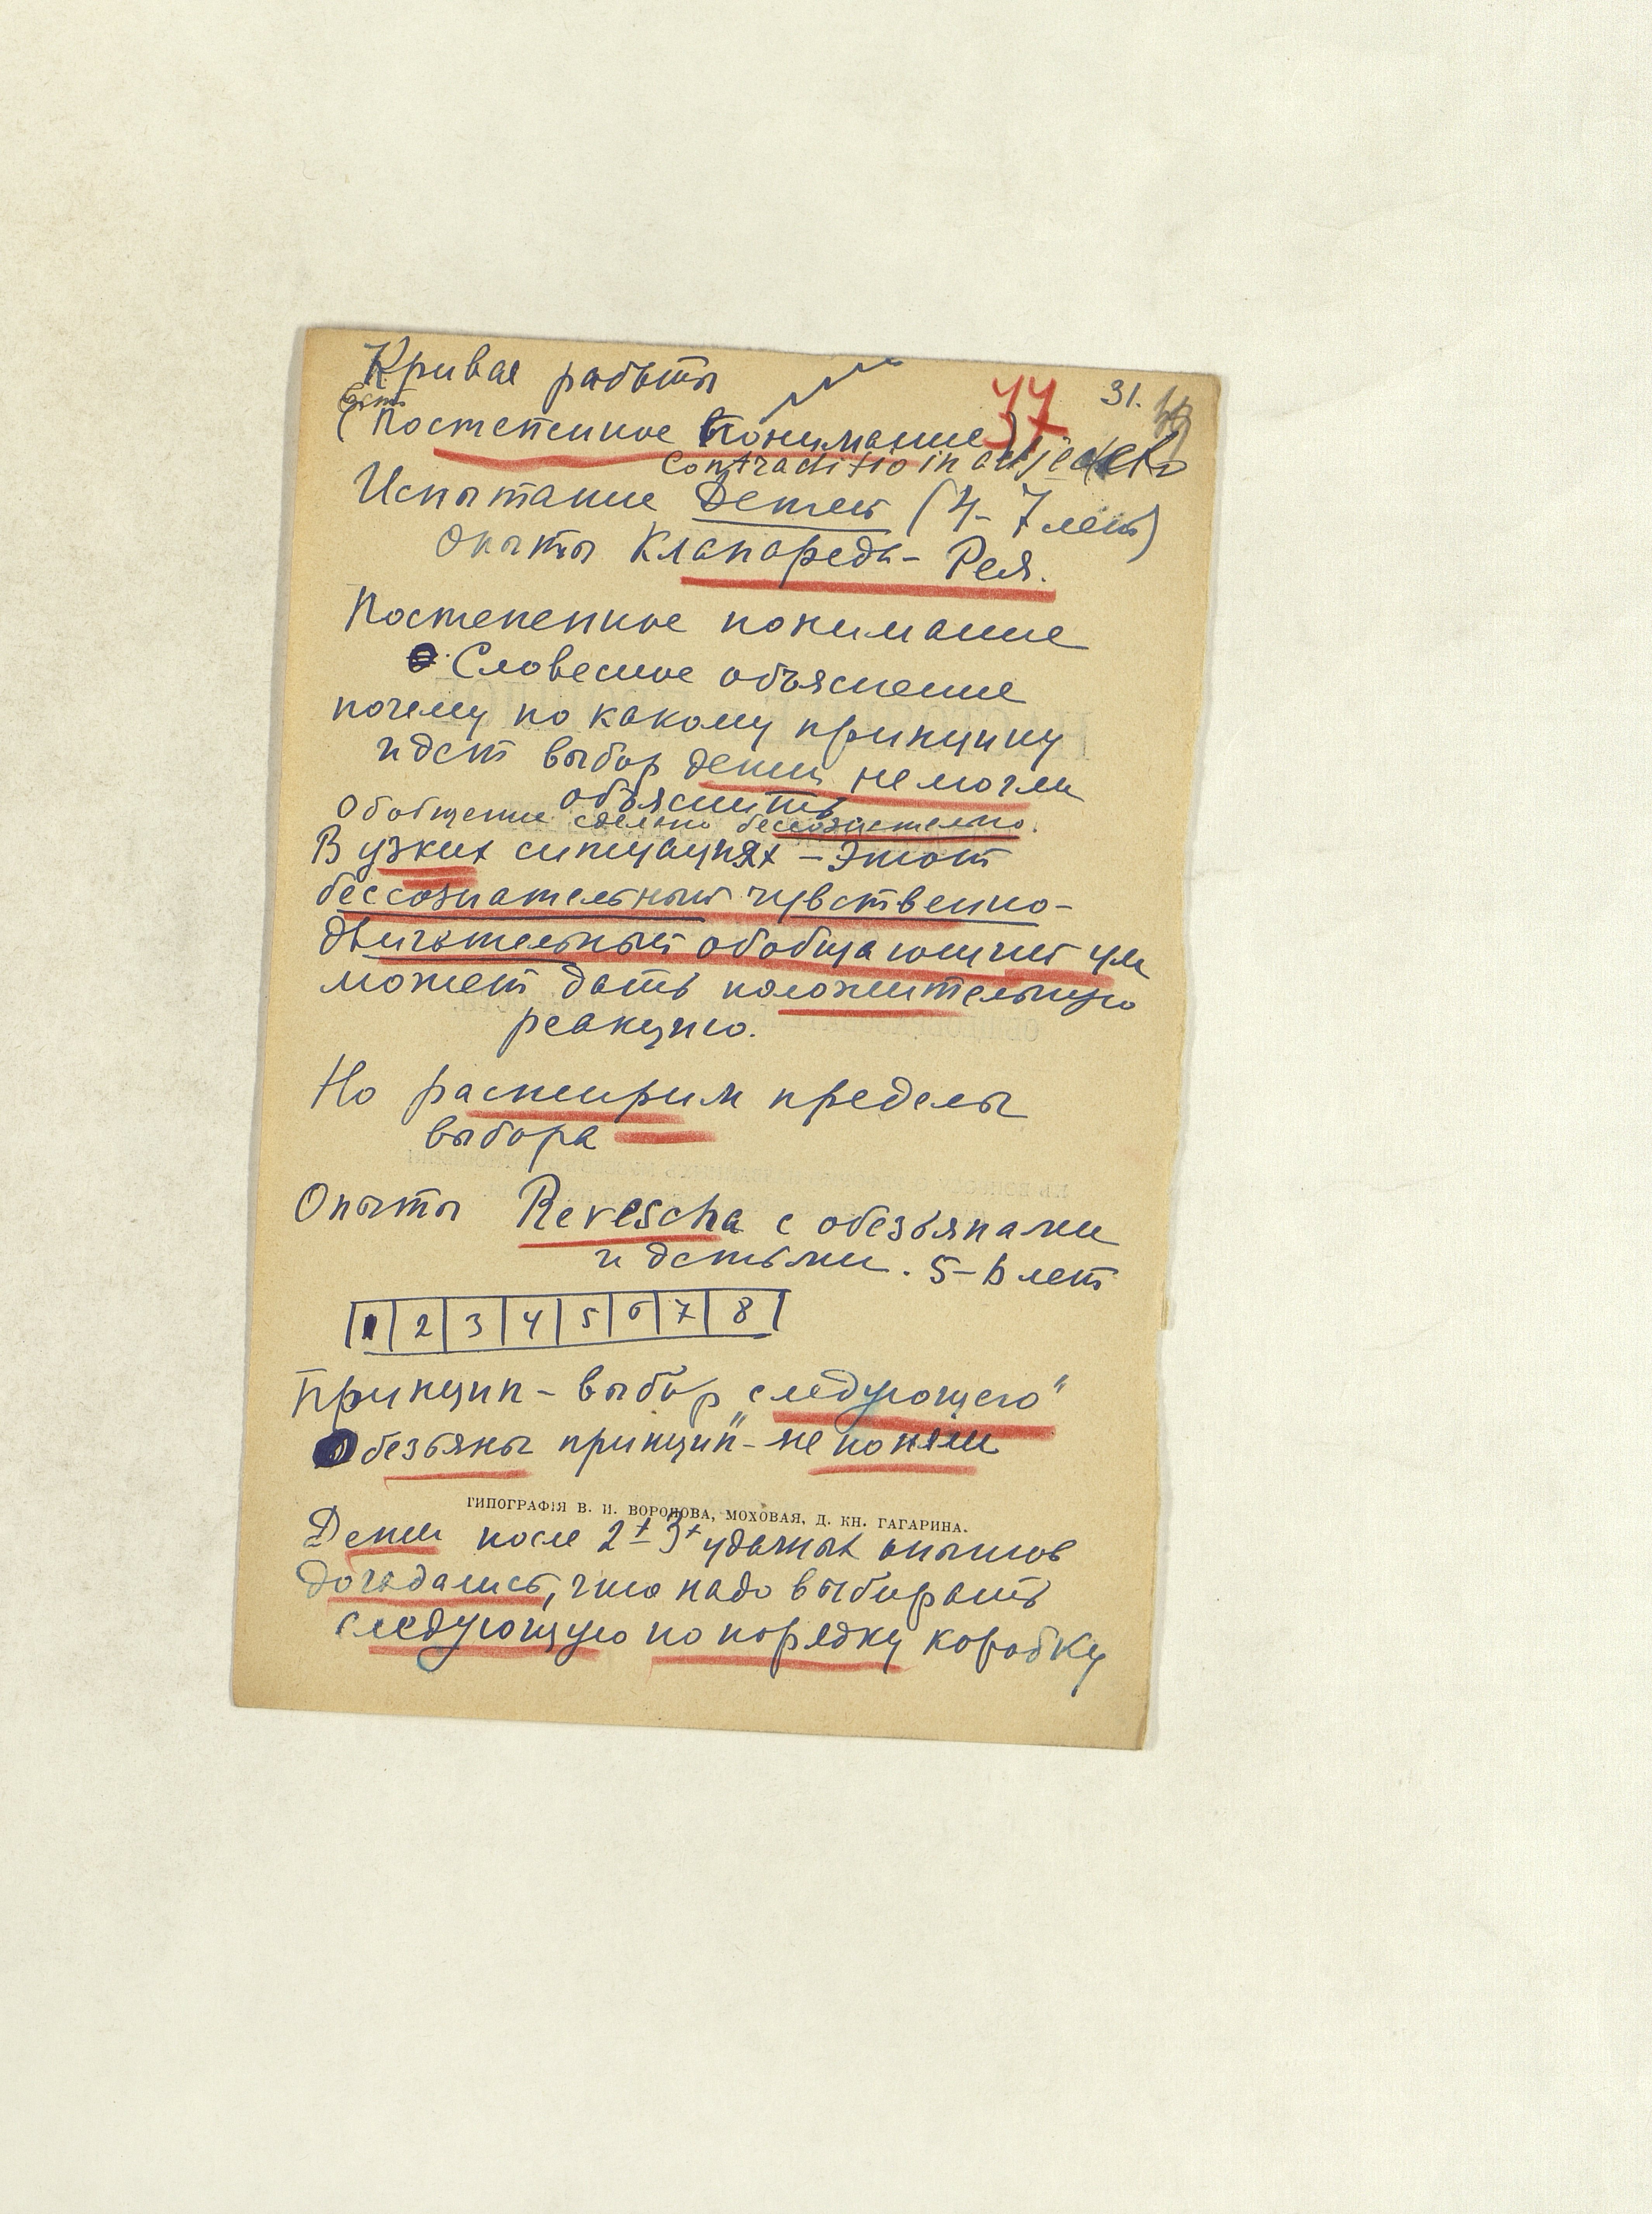 Кривая работы
44 31.
Есть
(Постепенное понимание)
37
Contraditio in adjecto
Испытание Детей (4-7 лет)
Опыты Клапареда - Рея.
Постепенное понимание
Словесное объяснение
почему по какому принципу
идет выбор дети не могли
объяснить
Обобщение сделано бессознательно.
В узких ситуациях - этот
бессознательный чувственно-
двигательный обобщающий ум
может дать положительную
реакцию.
Но расширим пределы
выбора
Опыты Revescha с обезьянами
и детьми. 5-6 лет
1 2 3 4 5 6 7 8
Принцип - выбор „следующего"
Обезьяны принцип" - не поняли
ТИПОГРАФІЯ В. И. ВОРОНОВА, МОХОВАЯ, Д. КН. ГАГАРИНА.
Дети после 2х-3х удачных опытов
догадались, что надо выбирать
следующую по порядку коробку